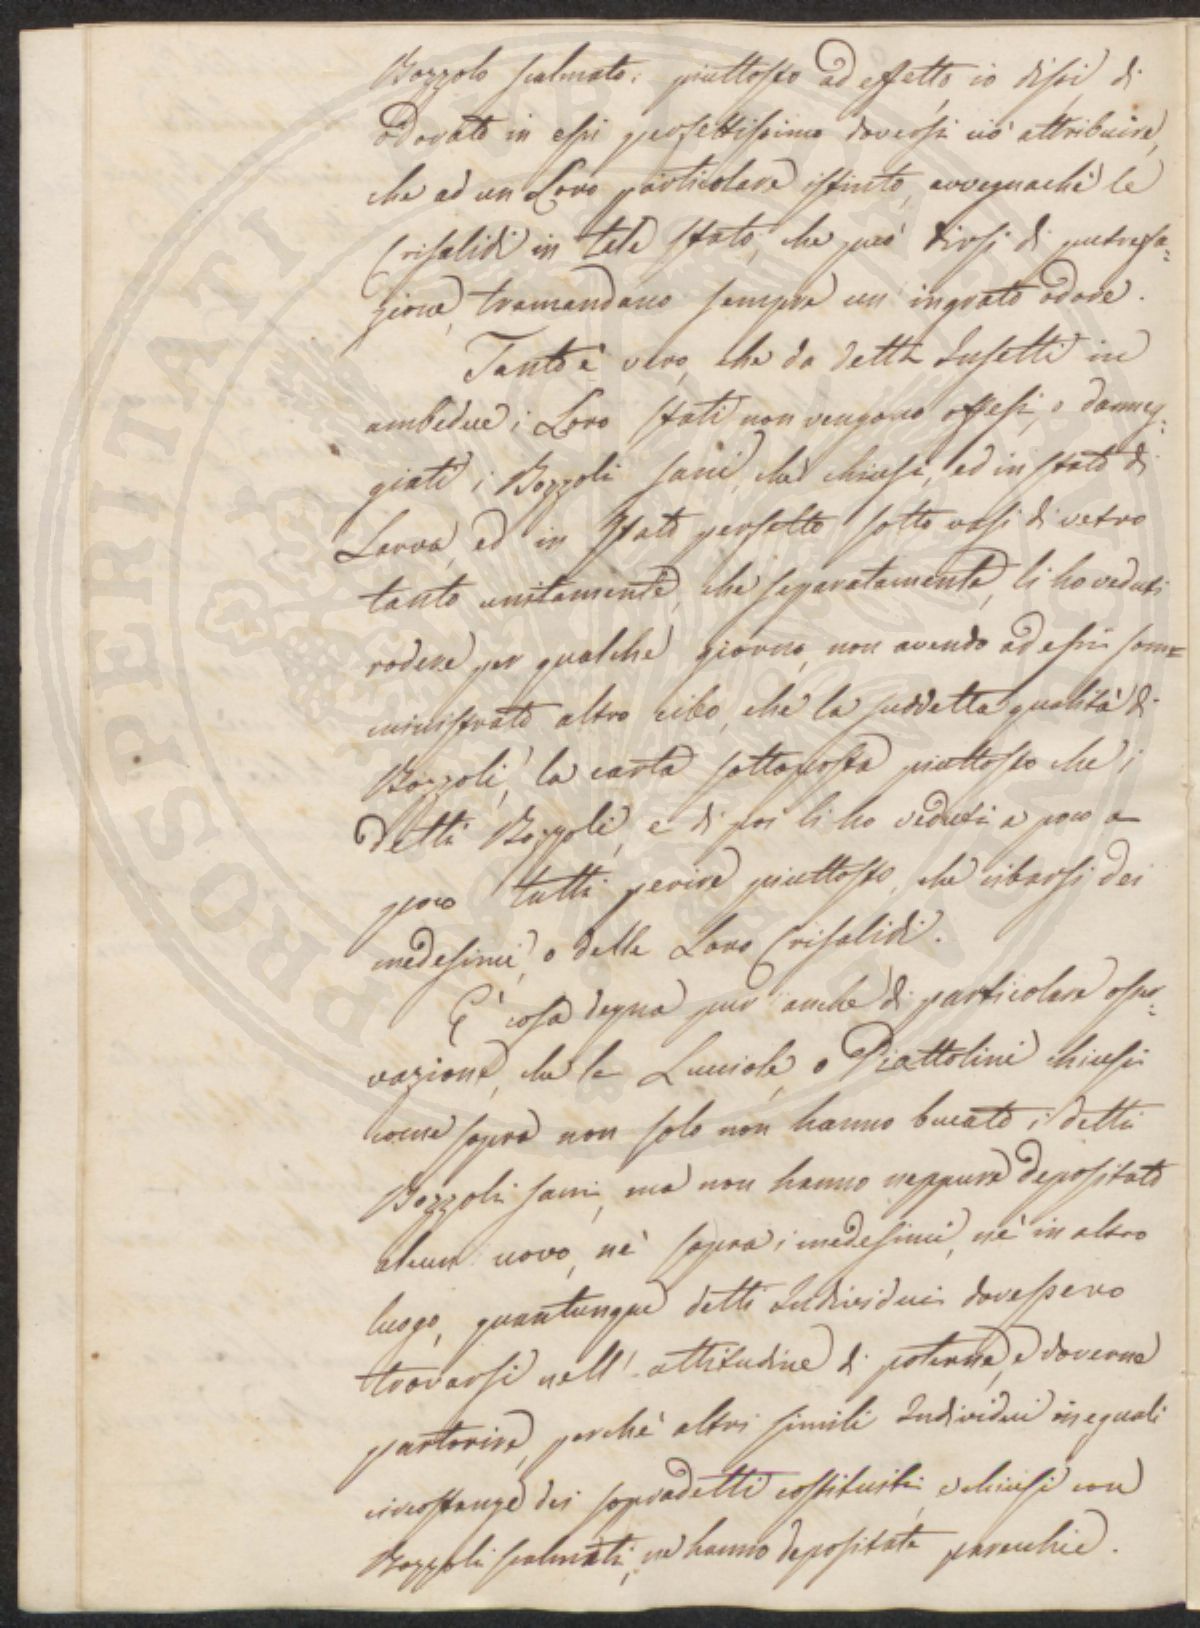 Bozzolo scalmato; piuttosto ad effetto io dissi di
odorato in essi perfettissimo doversi ciò attribuire,
che ad un Loro particolare istinto, avvegnachè le
Crisalidi in tale stato, che può dirsi di putrefa=
zione, tramandano sempre un ingrato odore.
Tanto è vero, che da detti Insetti in
ambedue i Loro stati non vengono offesi, o danneg=
giati i Bozzoli sani, che chiusi, ed in stato di
Larva, ed in stato perfetto sotto vasi di vetro
tanto unitamente, che separatamente, li ho veduti
rodere per qualche giorno, non avendo ad essi som=
ministrato altro cibo, che la suddetta qualità di
Bozzoli, la carta sottoposta piuttosto che i
detti Bozzoli, e di poi li ho veduti a poco a
poco tutti perire piuttosto, che cibarsi dei
medesimi, o delle Loro Crisalidi.
È cosa degna pur anche di particolare osser=
vazione, che le Lucciole, o Piattolini chiusi
come sopra non solo non hanno bucato i detti
Bozzoli sani, ma non hanno neppure depositato
alcun uovo, nè sopra i medesimi, nè in altro
luogo, quantunque detti Individui dovessero
trovarsi nell'attitudine di poterne, e doverne
partorire, perchè altri simili Individui in eguali
circostanze dei sopradetti costituiti, e chiusi con
Bozzoli scalmati, ne hanno depositate parecchie.
PROSPERITATI PUBLICAE AUGENDAE